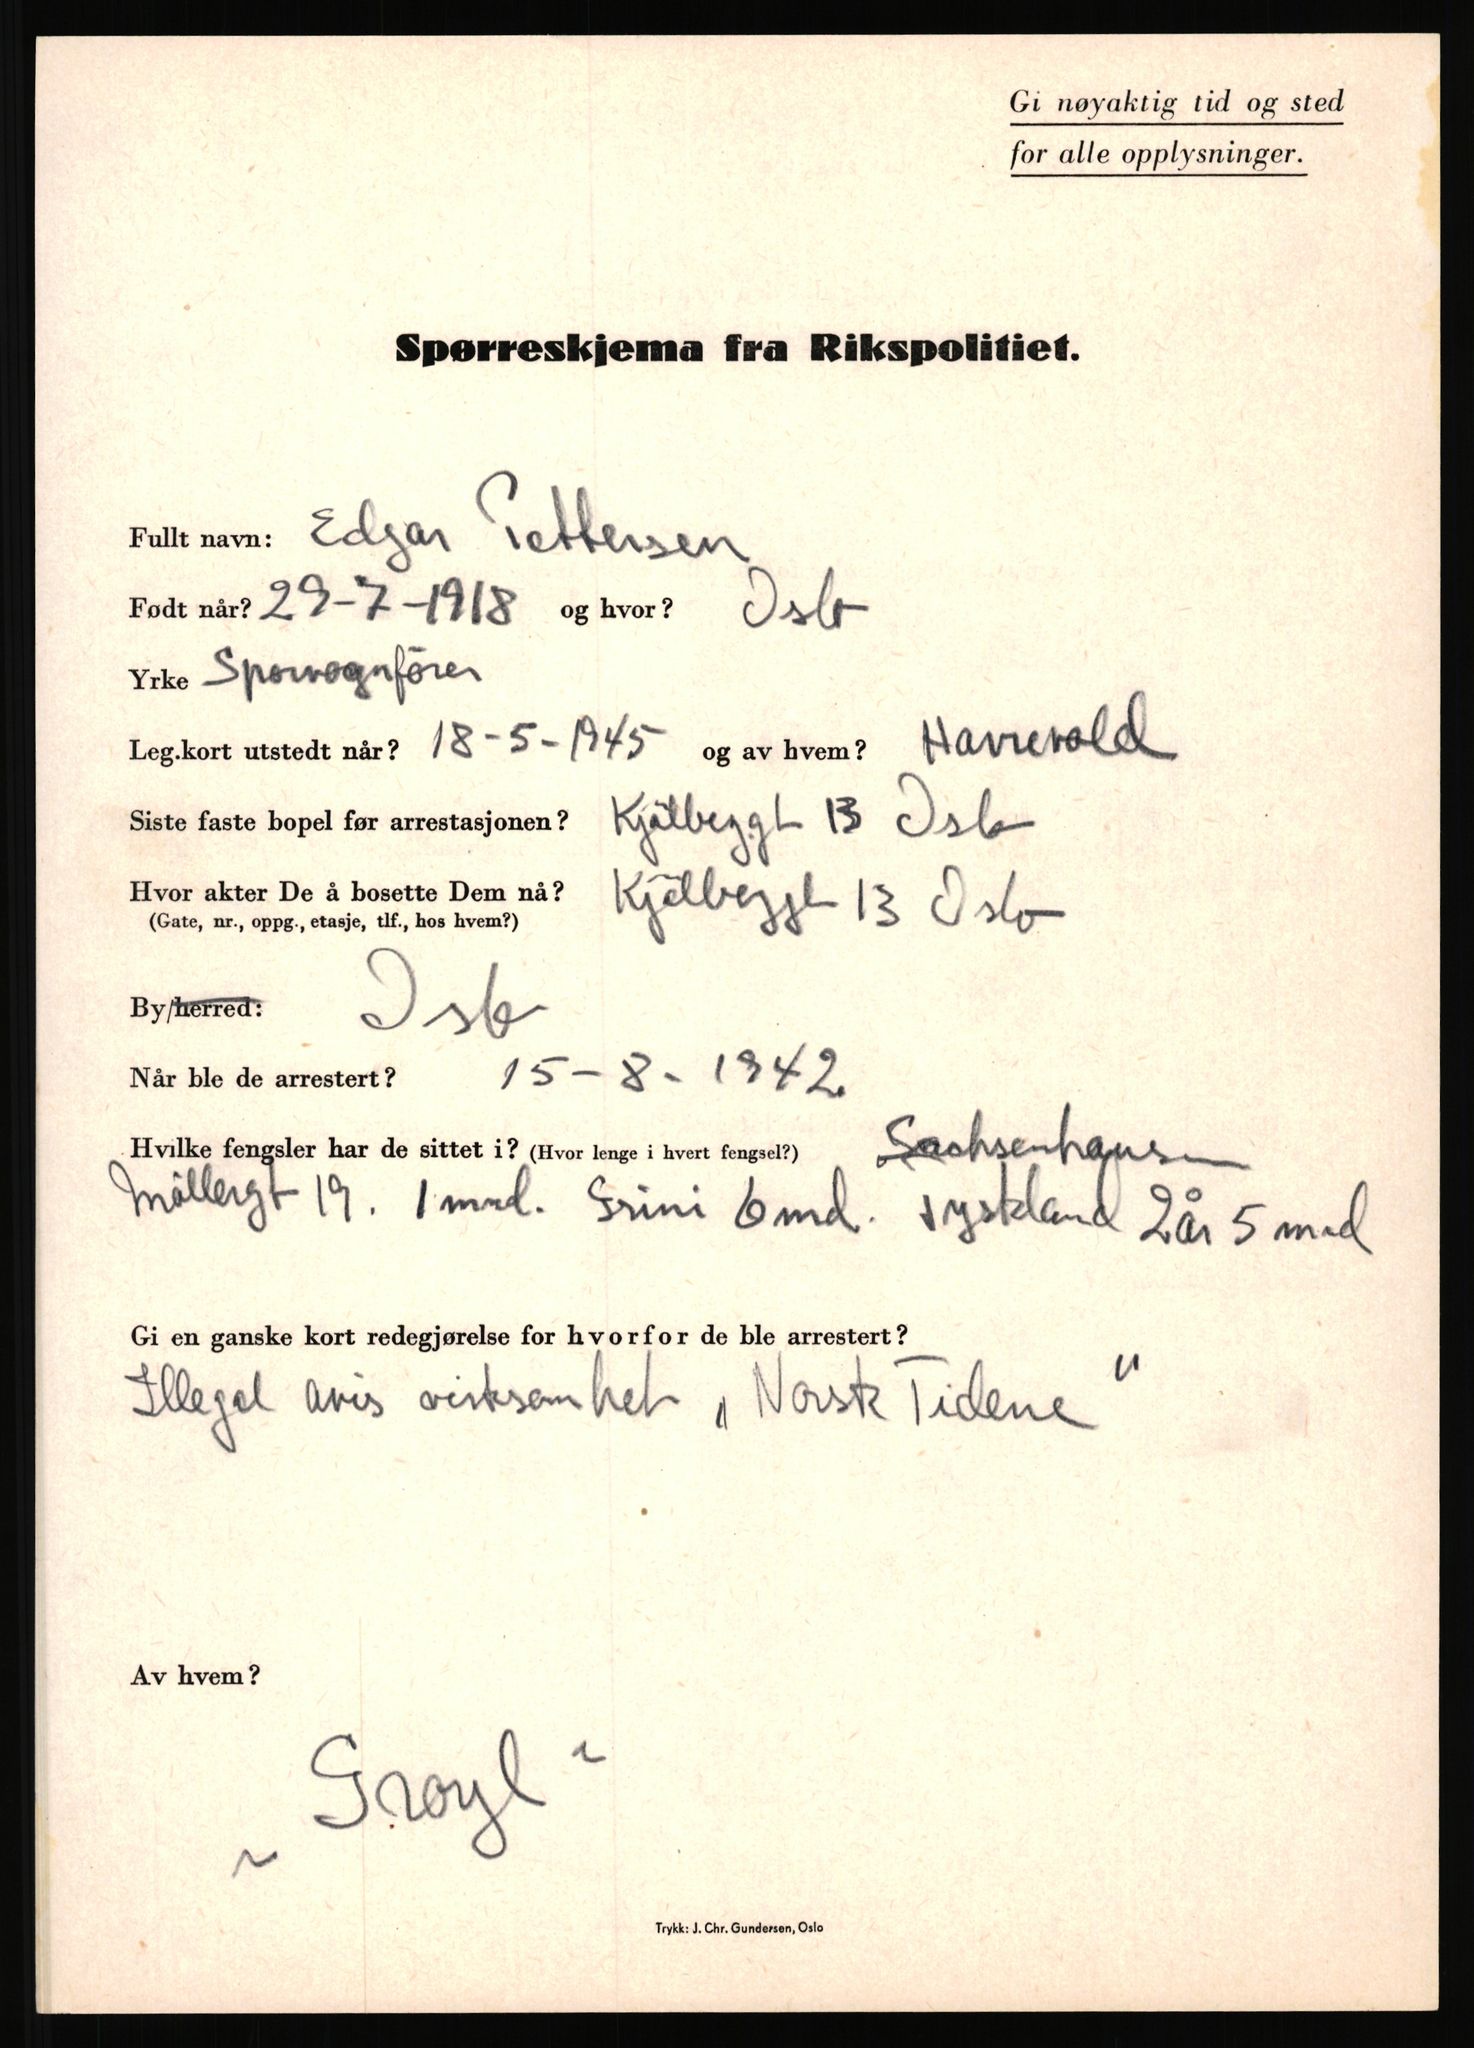 Gi nøyaktig tid og sted
for alle opplysninger.
Spørreskjema fra Rikspolitiet.
Fullt navn: Edgar Pettersen
Født når? 29-7-1918 og hvor? Oslo
Yrke Sporvognfører
Leg.kort utstedt når? 18-5-1945 og av hvem? Havrevold
Siste faste bopel før arrestasjonen? Kjölbeggt 13 Oslo
Hvor akter De å bosette Dem nå? Kjölbeggt 13 Oslo
(Gate, nr., oppg., etasje, tlf., hos hvem?)
By/herred: Oslo
Når ble de arrestert? 15-8-1942
Hvilke fengsler har de sittet i? (Hvor lenge i hvert fengsel?) Sachsenhausen
Möllergt 19. 1 mnd. Grini 6 md. Tyskland 2 år 5 mnd
Gi en ganske kort redegjørelse for hvorfor de ble arrestert?
Illegal avis virksomhet „Norsk Tidene"
Av hvem?
Trykk: J. Chr. Gundersen, Oslo